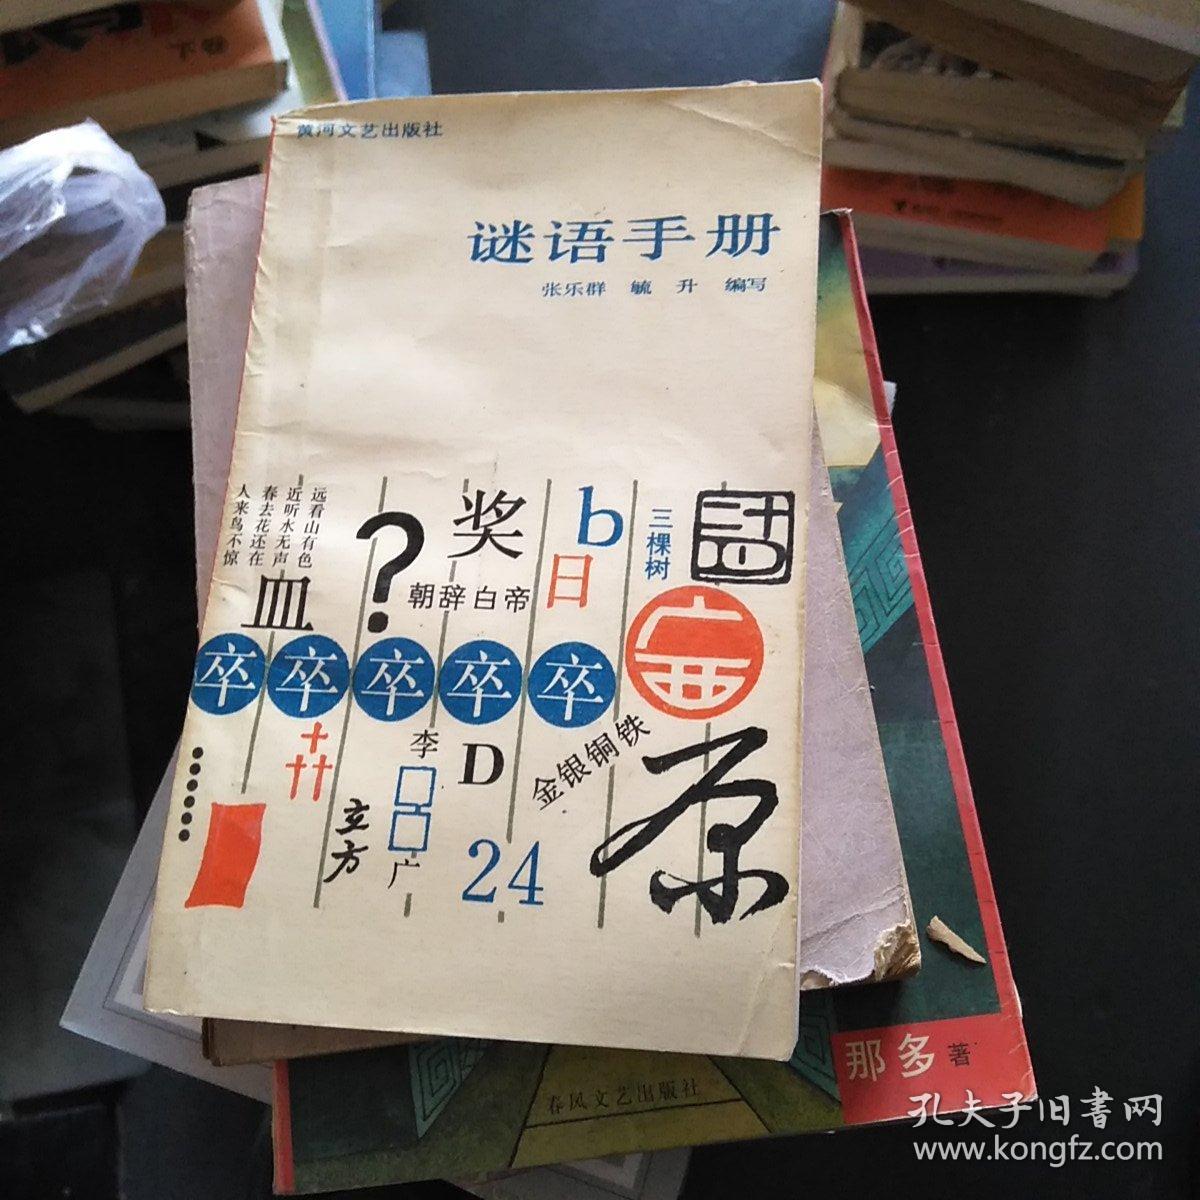 黄河文艺出版社
谜语手册
张乐群 毓升 编写
远看山有色
近听水无声
春去花还在
人来鸟不惊
皿
?
奖
朝辞白帝
b
日
三棵树
卒卒卒卒卒
广西
李
广
立方
D
24
金银铜铁
原
那多著
春风文艺出版社
孔夫子旧书网
www.kongfz.com